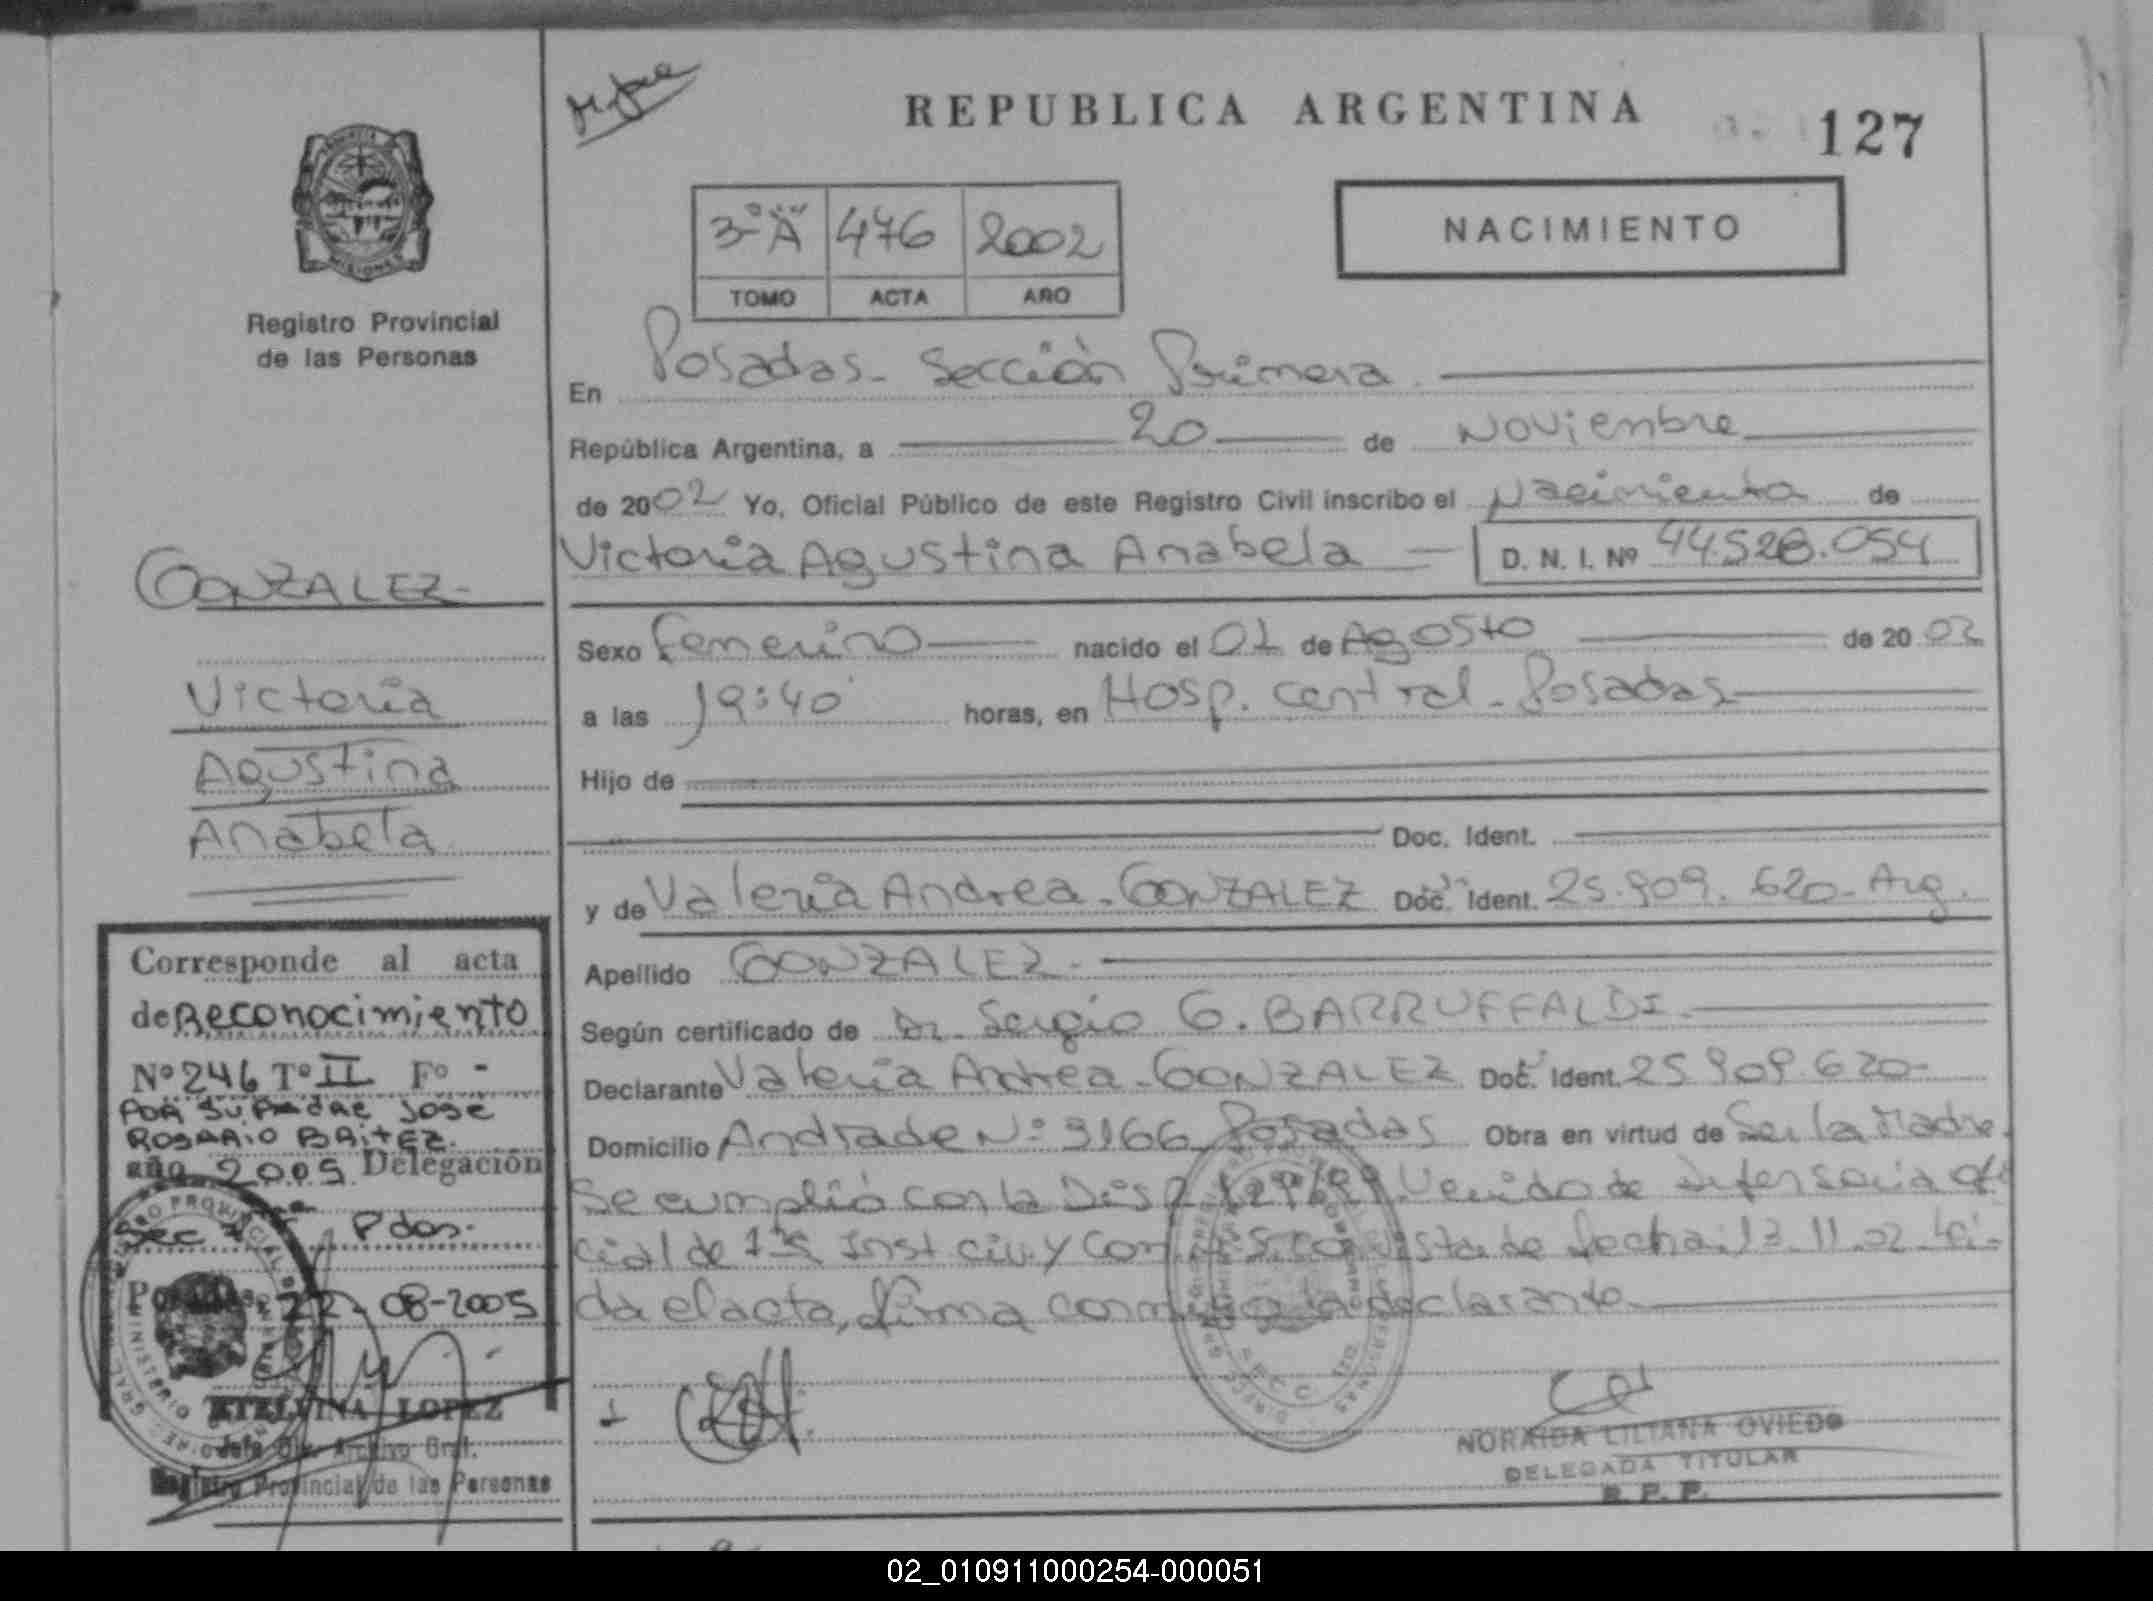 REPUBLICA ARGENTINA
127
3º "A" 476 2002
TOMO ACTA AÑO
NACIMIENTO
PROVINCIA
MISIONES
Registro Provincial
de las Personas
En Posadas - Sección Primera
República Argentina, a 20 de Noviembre
de 2002 Yo, Oficial Público de este Registro Civil inscribo el Nacimiento de
Victoria Agustina Anabela D. N. I. Nº 44.528.054
Sexo Femenino nacido el 01 de Agosto de 2002
a las 19:40 horas, en Hosp. Central - Posadas
Hijo de
Doc. Ident.
y de Valeria Andrea - GONZALEZ Doc. Ident. 25.909.620 - Arg.
Apellido GONZALEZ -
Según certificado de Dr. Sergio G. BARRUFFALDI -
Declarante Valeria Andrea - GONZALEZ Doc. Ident. 25.909.620 -
Domicilio Andrade Nº 3166 Posadas Obra en virtud de Ser la Madre
Se cumplió con la Venido de Defensoria Ofi
cial de 1ra Inst civ. y Com. de fecha: 13.11.02 Lei-
da el acta, firma conmigo la declarante
NORAIDA LILIANA OVIEDO
DELEGADA TITULAR
R. P. P.
GONZALEZ -
Victoria
Agustina
Anabela
Corresponde al acta
de Reconocimiento
Nº 246 Tº II Fº -
POR SU PADRE JOSE
ROSARIO BRITEZ.
año 2005 Delegación
Sec 1ra Pdas.
Posadas, 22-08-2005
ETELVINA LOPEZ
Jefe Div. Archivo Gral.
Registro Provincial de las Personas
02_010911000254-000051